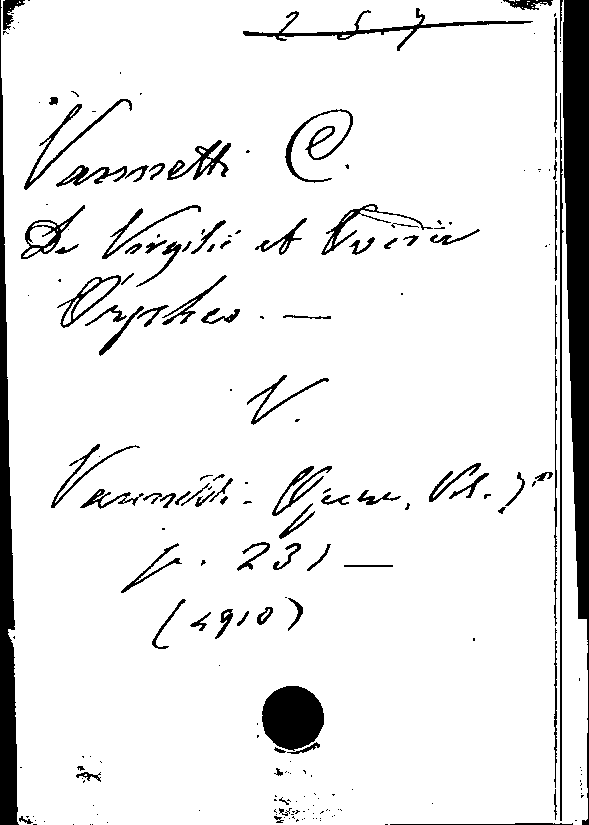 2 5 7
Vannetti C.
De Virgilii et Ovidii
Orpheo. —
V.
Vannetti - Opere, Vol. 7º
p. 231 —
(4910)